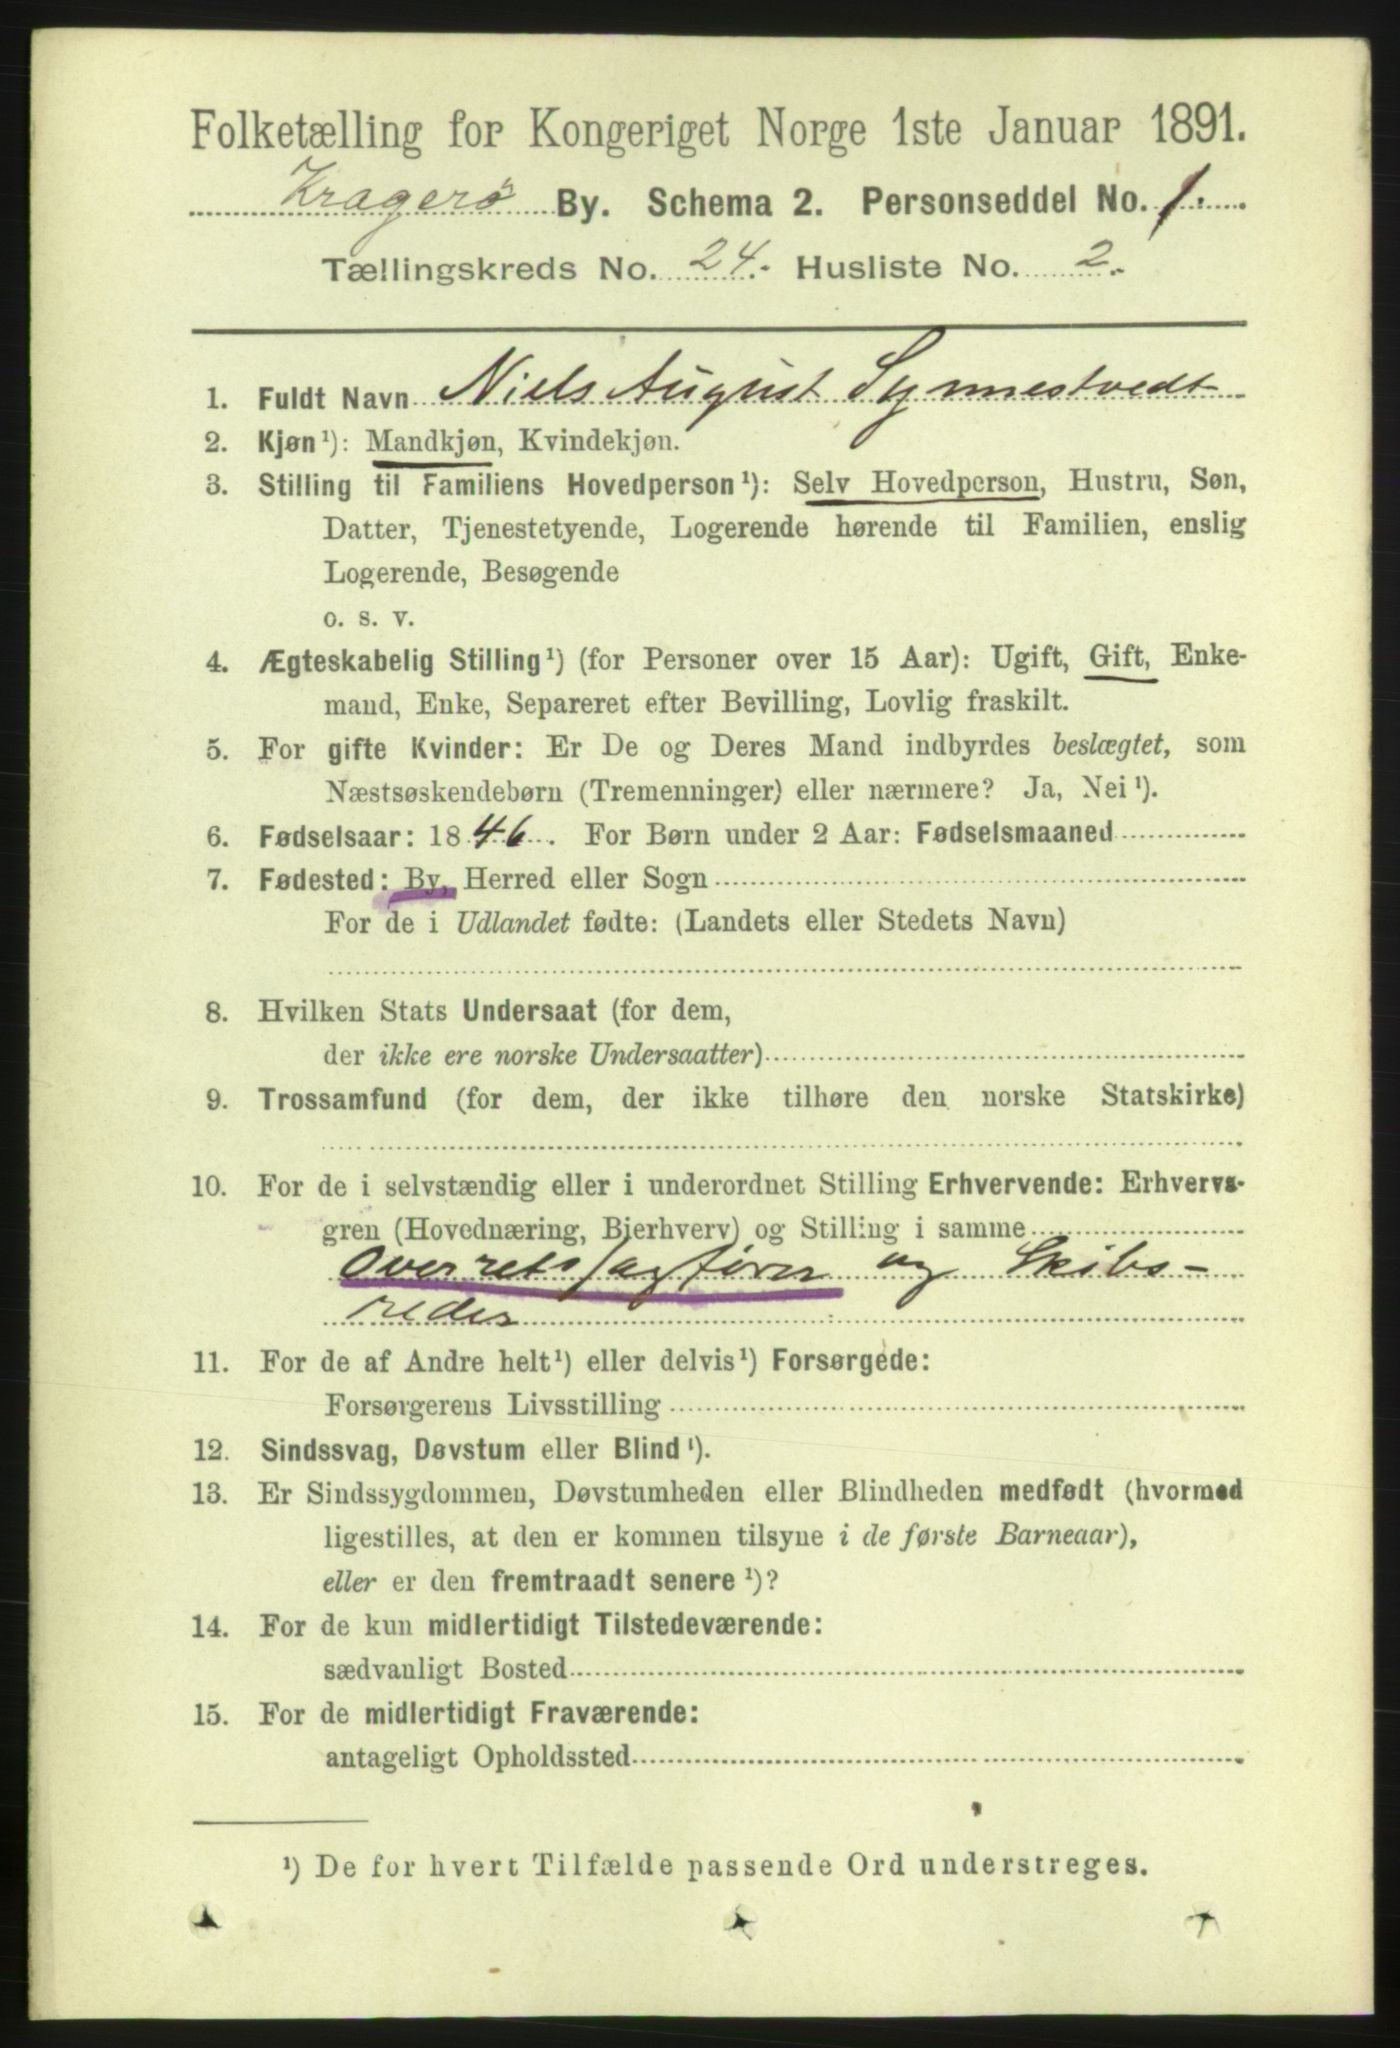 Folketælling for Kongeriget Norge 1ste Januar 1891.
Kragerö By. Schema 2. Personseddel No. 1.
Tællingskreds No. 24. Husliste No. 2.
1. Fuldt Navn Niels August Synnestvedt
2. Kjøn¹): Mandkjøn, Kvindekjøn.
3. Stilling til Familiens Hovedperson¹): Selv Hovedperson, Hustru, Søn,
Datter, Tjenestetyende, Logerende hørende til Familien, enslig
Logerende, Besøgende
o. s. v.
4. Ægteskabelig Stilling¹) (for Personer over 15 Aar): Ugift, Gift, Enke-
mand, Enke, Separeret efter Bevilling, Lovlig fraskilt.
5. For gifte Kvinder: Er De og Deres Mand indbyrdes beslægtet, som
Næstsøskendebørn (Tremenninger) eller nærmere? Ja, Nei¹).
6. Fødselsaar: 1846. For Børn under 2 Aar: Fødselsmaaned
7. Fødested: By, Herred eller Sogn
For de i Udlandet fødte: (Landets eller Stedets Navn)
8. Hvilken Stats Undersaat (for dem,
der ikke ere norske Undersaatter)
9. Trossamfund (for dem, der ikke tilhøre den norske Statskirke)
10. For de i selvstændig eller i underordnet Stilling Erhvervende: Erhvervs-
gren (Hovednæring, Bierhverv) og Stilling i samme
Overretssagfører og Skibs-
reder
11. For de af Andre helt¹) eller delvis¹) Forsørgede:
Forsørgerens Livsstilling
12. Sindssvag, Døvstum eller Blind¹).
13. Er Sindssygdommen, Døvstumheden eller Blindheden medfødt (hvormed
ligestilles, at den er kommen tilsyne i de første Barneaar),
eller er den fremtraadt senere¹)?
14. For de kun midlertidigt Tilstedeværende:
sædvanligt Bosted
15. For de midlertidigt Fraværende:
antageligt Opholdssted
¹) De for hvert Tilfælde passende Ord understreges.